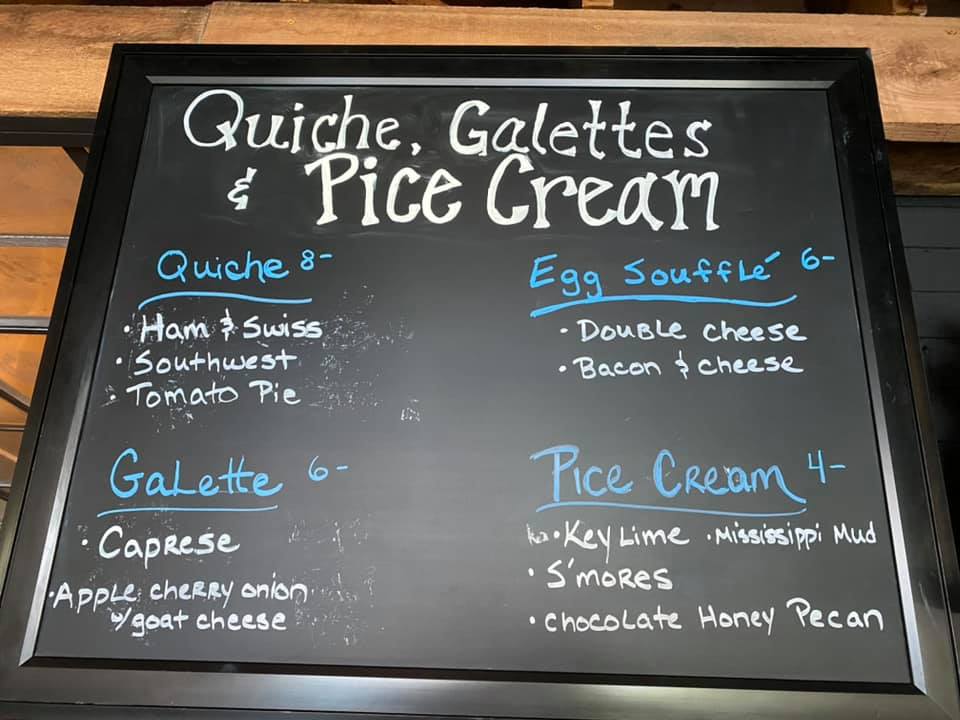 Quiche, Galettes
& Pice Cream
Quiche 8-
• Ham & Swiss
• Southwest
• Tomato Pie
Egg Soufflé 6-
• Double cheese
• Bacon & cheese
Galette 6-
• Caprese
• Apple cherry onion
w/goat cheese
Pice Cream 4-
• Key Lime • Mississippi Mud
• S'mores
• chocolate Honey Pecan